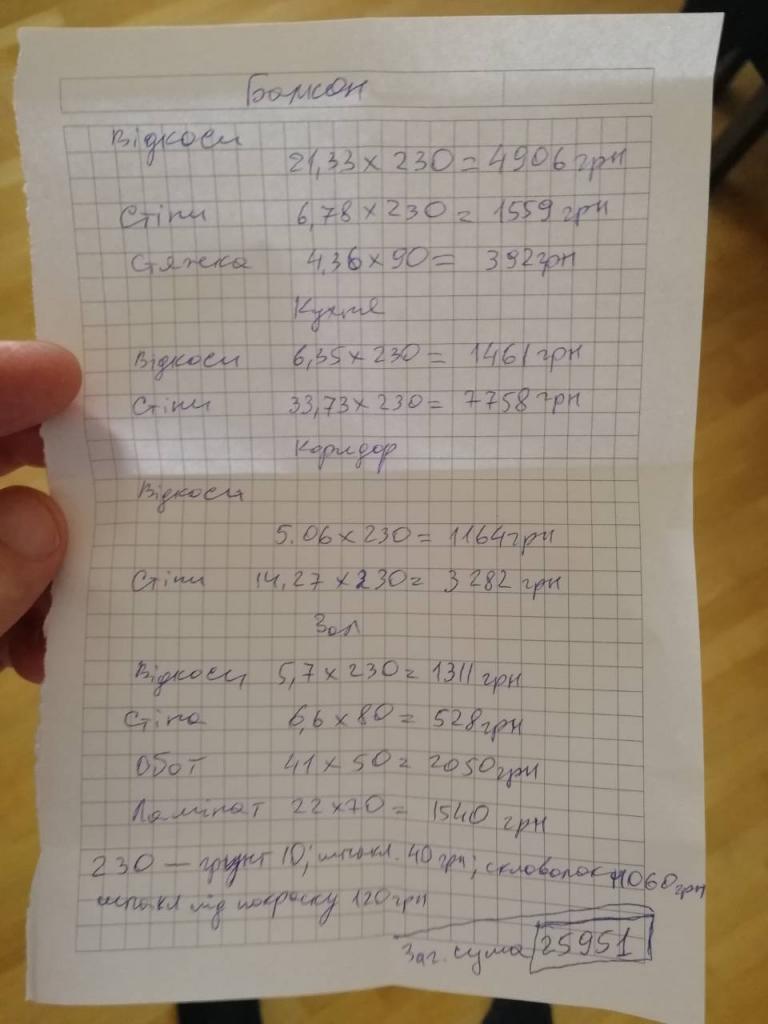 Балкон
Відкоси
21,33 х 230 = 4906 грн
Стіни 6,78 х 230 = 1559 грн
Стяжка 4,36 х 90 = 392 грн
Кухня
Відкоси 6,35 х 230 = 1461 грн
Стіни 33,73 х 230 = 7758 грн
Коридор
Відкоси
5.06 х 230 = 1164 грн
Стіни 14,27 х 230 = 3282 грн
Зал
Відкоси 5,7 х 230 = 1311 грн
Стіна 6,6 х 80 = 528 грн
Обот 41 х 50 = 2050 грн
Ламінат 22 х 70 = 1540 грн
230 — грунт 10; шпакл. 40 грн; скловолок 60 грн
шпакл під покраску 120 грн
Заг. сума 25951